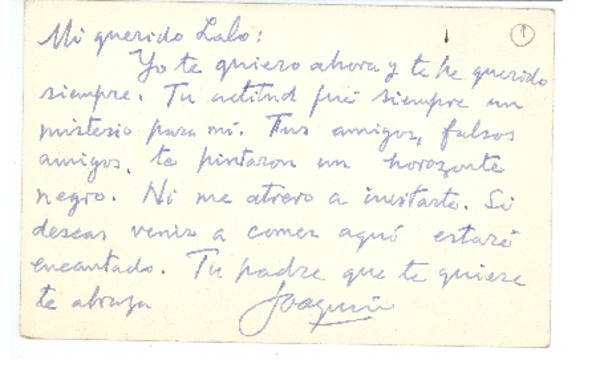 Mi querido Lalo:
1
Yo te quiero ahora y te he querido
siempre. Tu actitud fué siempre un
misterio para mí. Tus amigos, falsos
amigos, te pintaron un horozonte
negro. Ni me atrevo a invitarte. Si
deseas venir a comer aquí estaré
encantado. Tu padre que te quiere
te abraza Joaquín